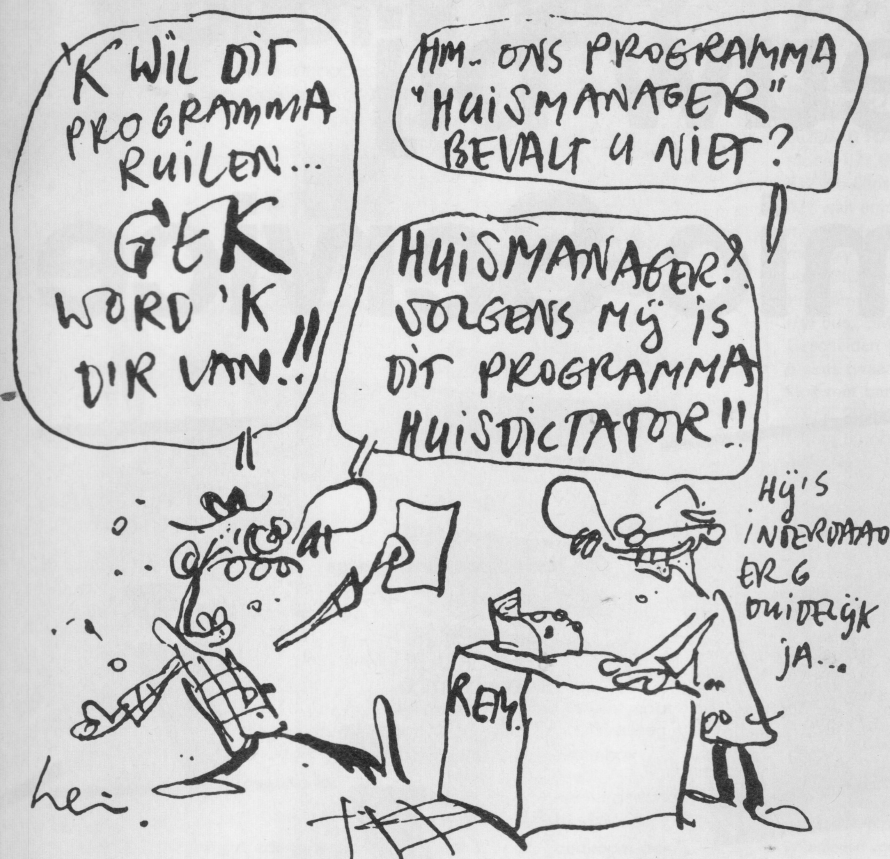 'K WIL DIT
PROGRAMMA
RUILEN...
GEK
WORD 'K
D'R VAN!!
HM.. ONS PROGRAMMA
"HUISMANAGER"
BEVALT U NIET?
HUISMANAGER?
VOLGENS MIJ IS
DIT PROGRAMMA
HUISDICTATOR!!
HIJ'S
INDERDAAD
ERG
DUIDELIJK
JA...
REM.
hei